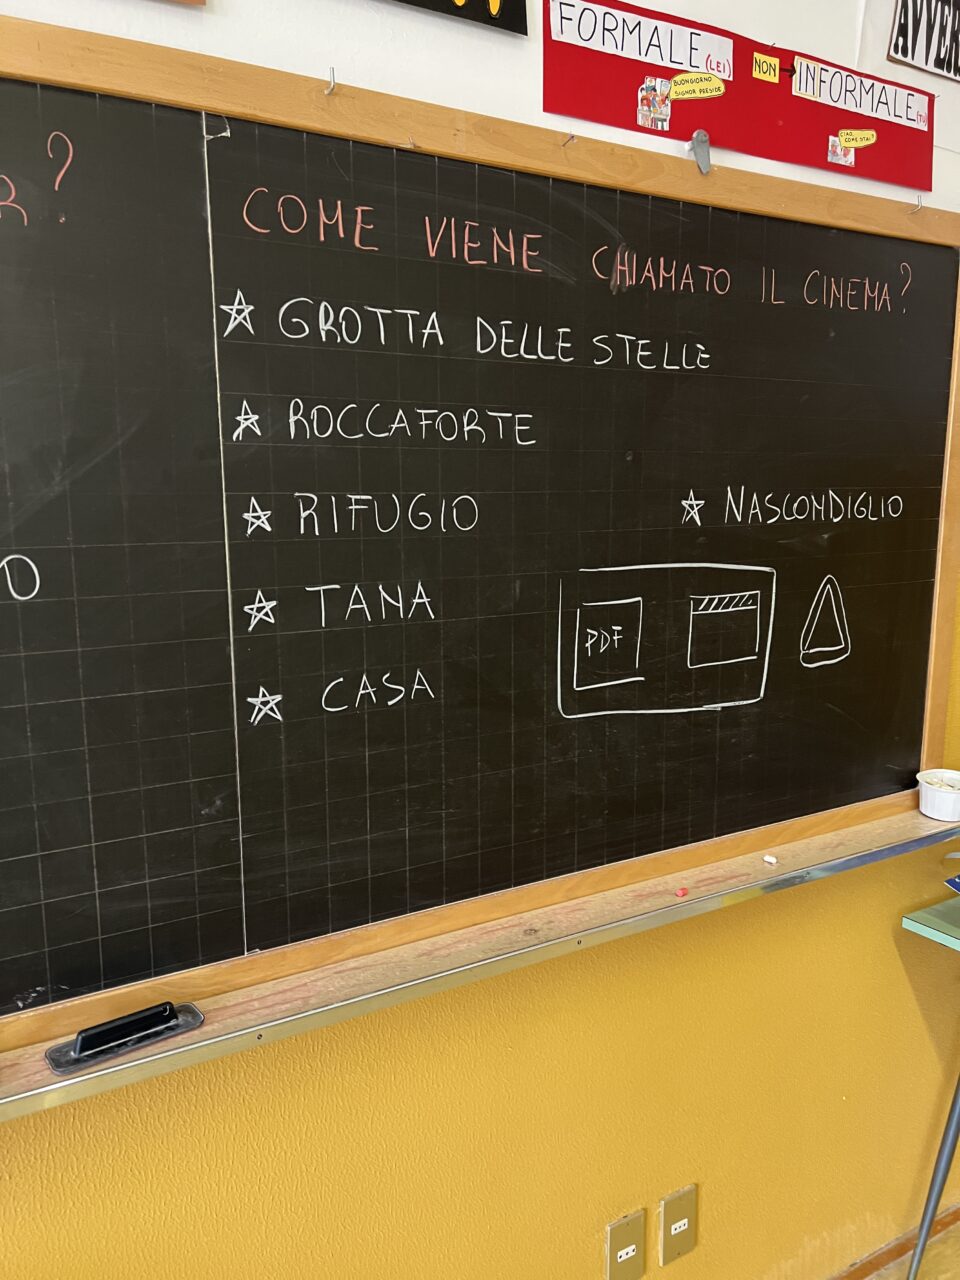 FORMALE (LEI)
NON
INFORMALE (TU)
BUONGIORNO
SIGNOR PRESIDE
CIAO,
COME STAI?
?
COME VIENE CHIAMATO IL CINEMA?
GROTTA DELLE STELLE
ROCCAFORTE
RIFUGIO
NASCONDIGLIO
TANA
PDF
CASA